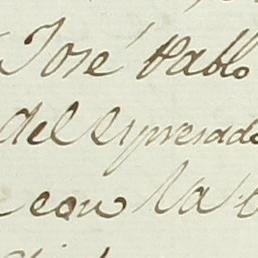 José Pablo
del Expresado
con la